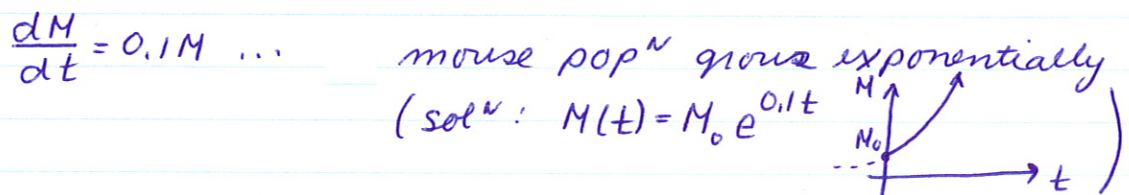 dM/dt = 0.1M ... mouse popᴺ grows exponentially
(solᴺ: M(t) = M₀ e^0.1t
M
M₀
t )